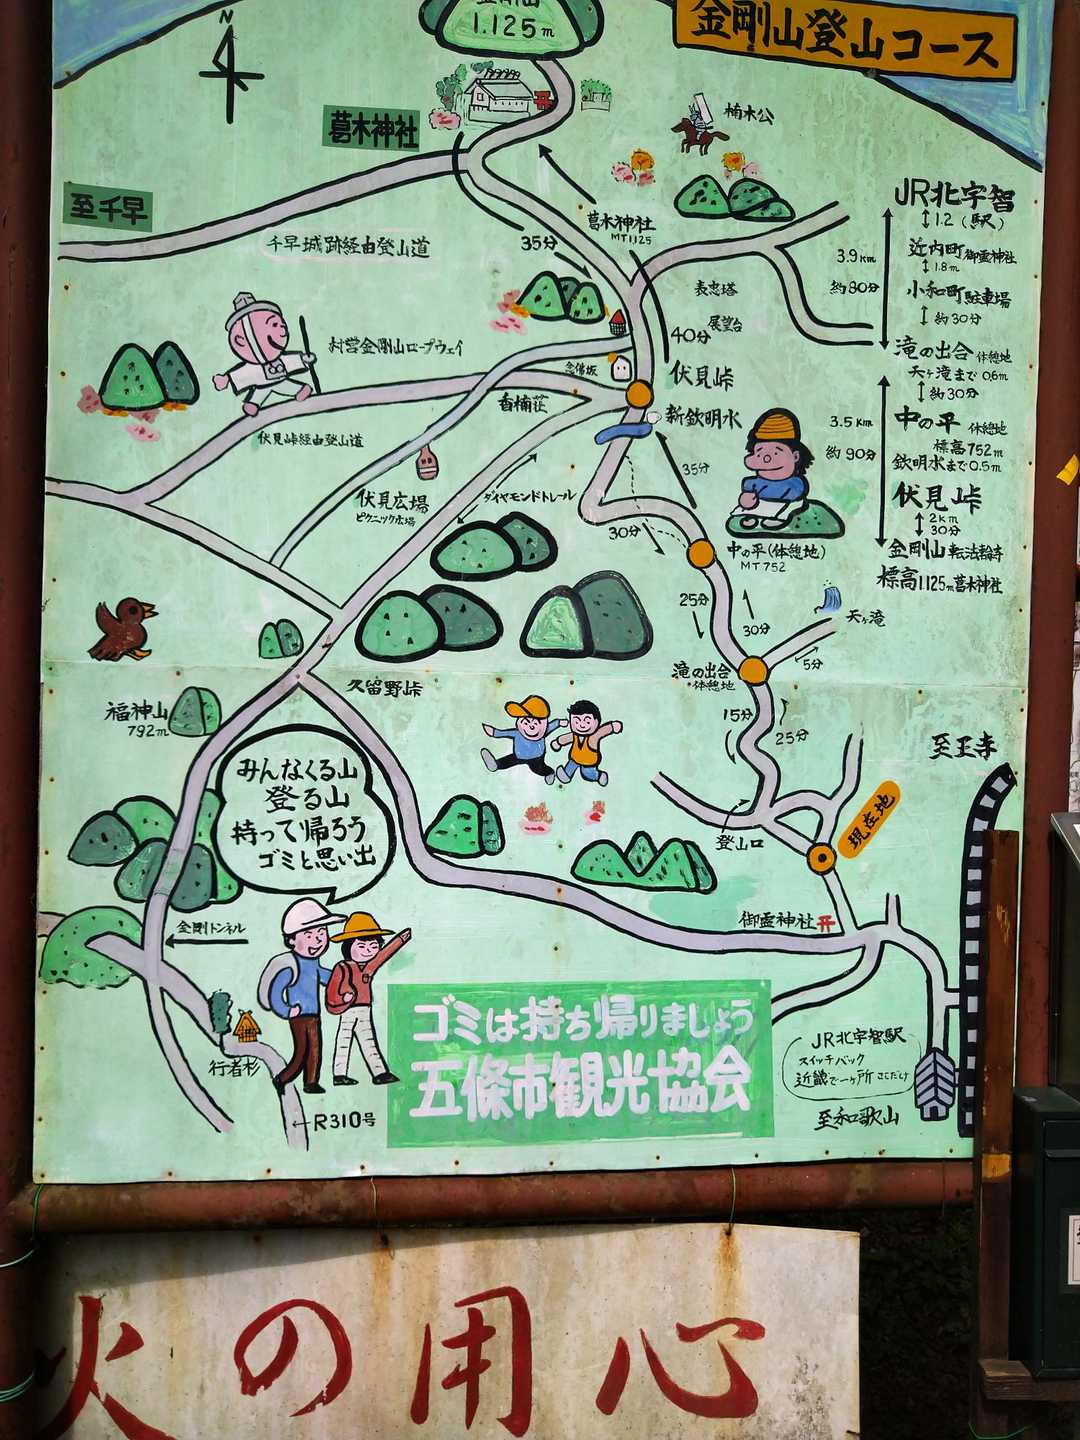 金剛山
1.125m
金剛山登山コース
N
葛木神社
楠木公
至千早
千早城跡経由登山道
35分
葛木神社
MT1125
JR北宇智
↕1.2 (駅)
近内町御霊神社
↕1.8m
小和町駐車場
↕約30分
滝の出合 休憩地
天ヶ滝まで0.6m
↕約30分
中の平 休憩地
標高752m
欽明水まで0.5m
伏見峠
↕2km
30分
金剛山転法輪寺
標高1125m葛木神社
3.9km
約80分
3.5km
約90分
表忠塔
展望台
40分
村営金剛山ロープウェイ
念佛坂
伏見峠
香楠荘
新欽明水
伏見峠経由登山道
35分
伏見広場
ピクニック広場
ダイヤモンドトレール
30分
中の平(休憩地)
MT752
25分
30分
天ヶ滝
5分
滝の出合
休憩地
久留野峠
福神山
792m
15分
25分
至王寺
みんなくる山
登る山
持って帰ろう
ゴミと思い出
現在地
登山口
金剛トンネル
御霊神社
行者杉
ゴミは持ち帰りましょう
五條市観光協会
JR北宇智駅
スイッチバック
近畿で一ヶ所 ここだけ
至和歌山
←R310号
火の用心